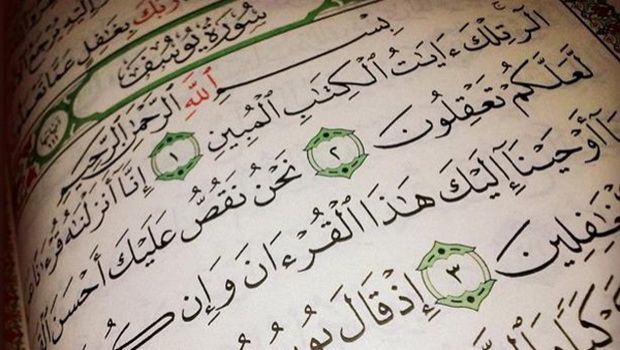 إليه يرجع
ربك بغفل عما تعمل
سُورَةُ يُوسُفَ
بِسْمِ ٱللَّهِ ٱلرَّحْمَٰنِ ٱلرَّحِيمِ
الٓر تِلْكَ ءَايَٰتُ ٱلْكِتَٰبِ ٱلْمُبِينِ ١ إِنَّآ أَنزَلْنَٰهُ قُرْءَٰنًا
لَّعَلَّكُمْ تَعْقِلُونَ ٢ نَحْنُ نَقُصُّ عَلَيْكَ أَحْسَنَ
أَوْحَيْنَآ إِلَيْكَ هَٰذَا ٱلْقُرْءَانَ وَإِن
ٱلْغَٰفِلِينَ ٣ إِذْ قَالَ